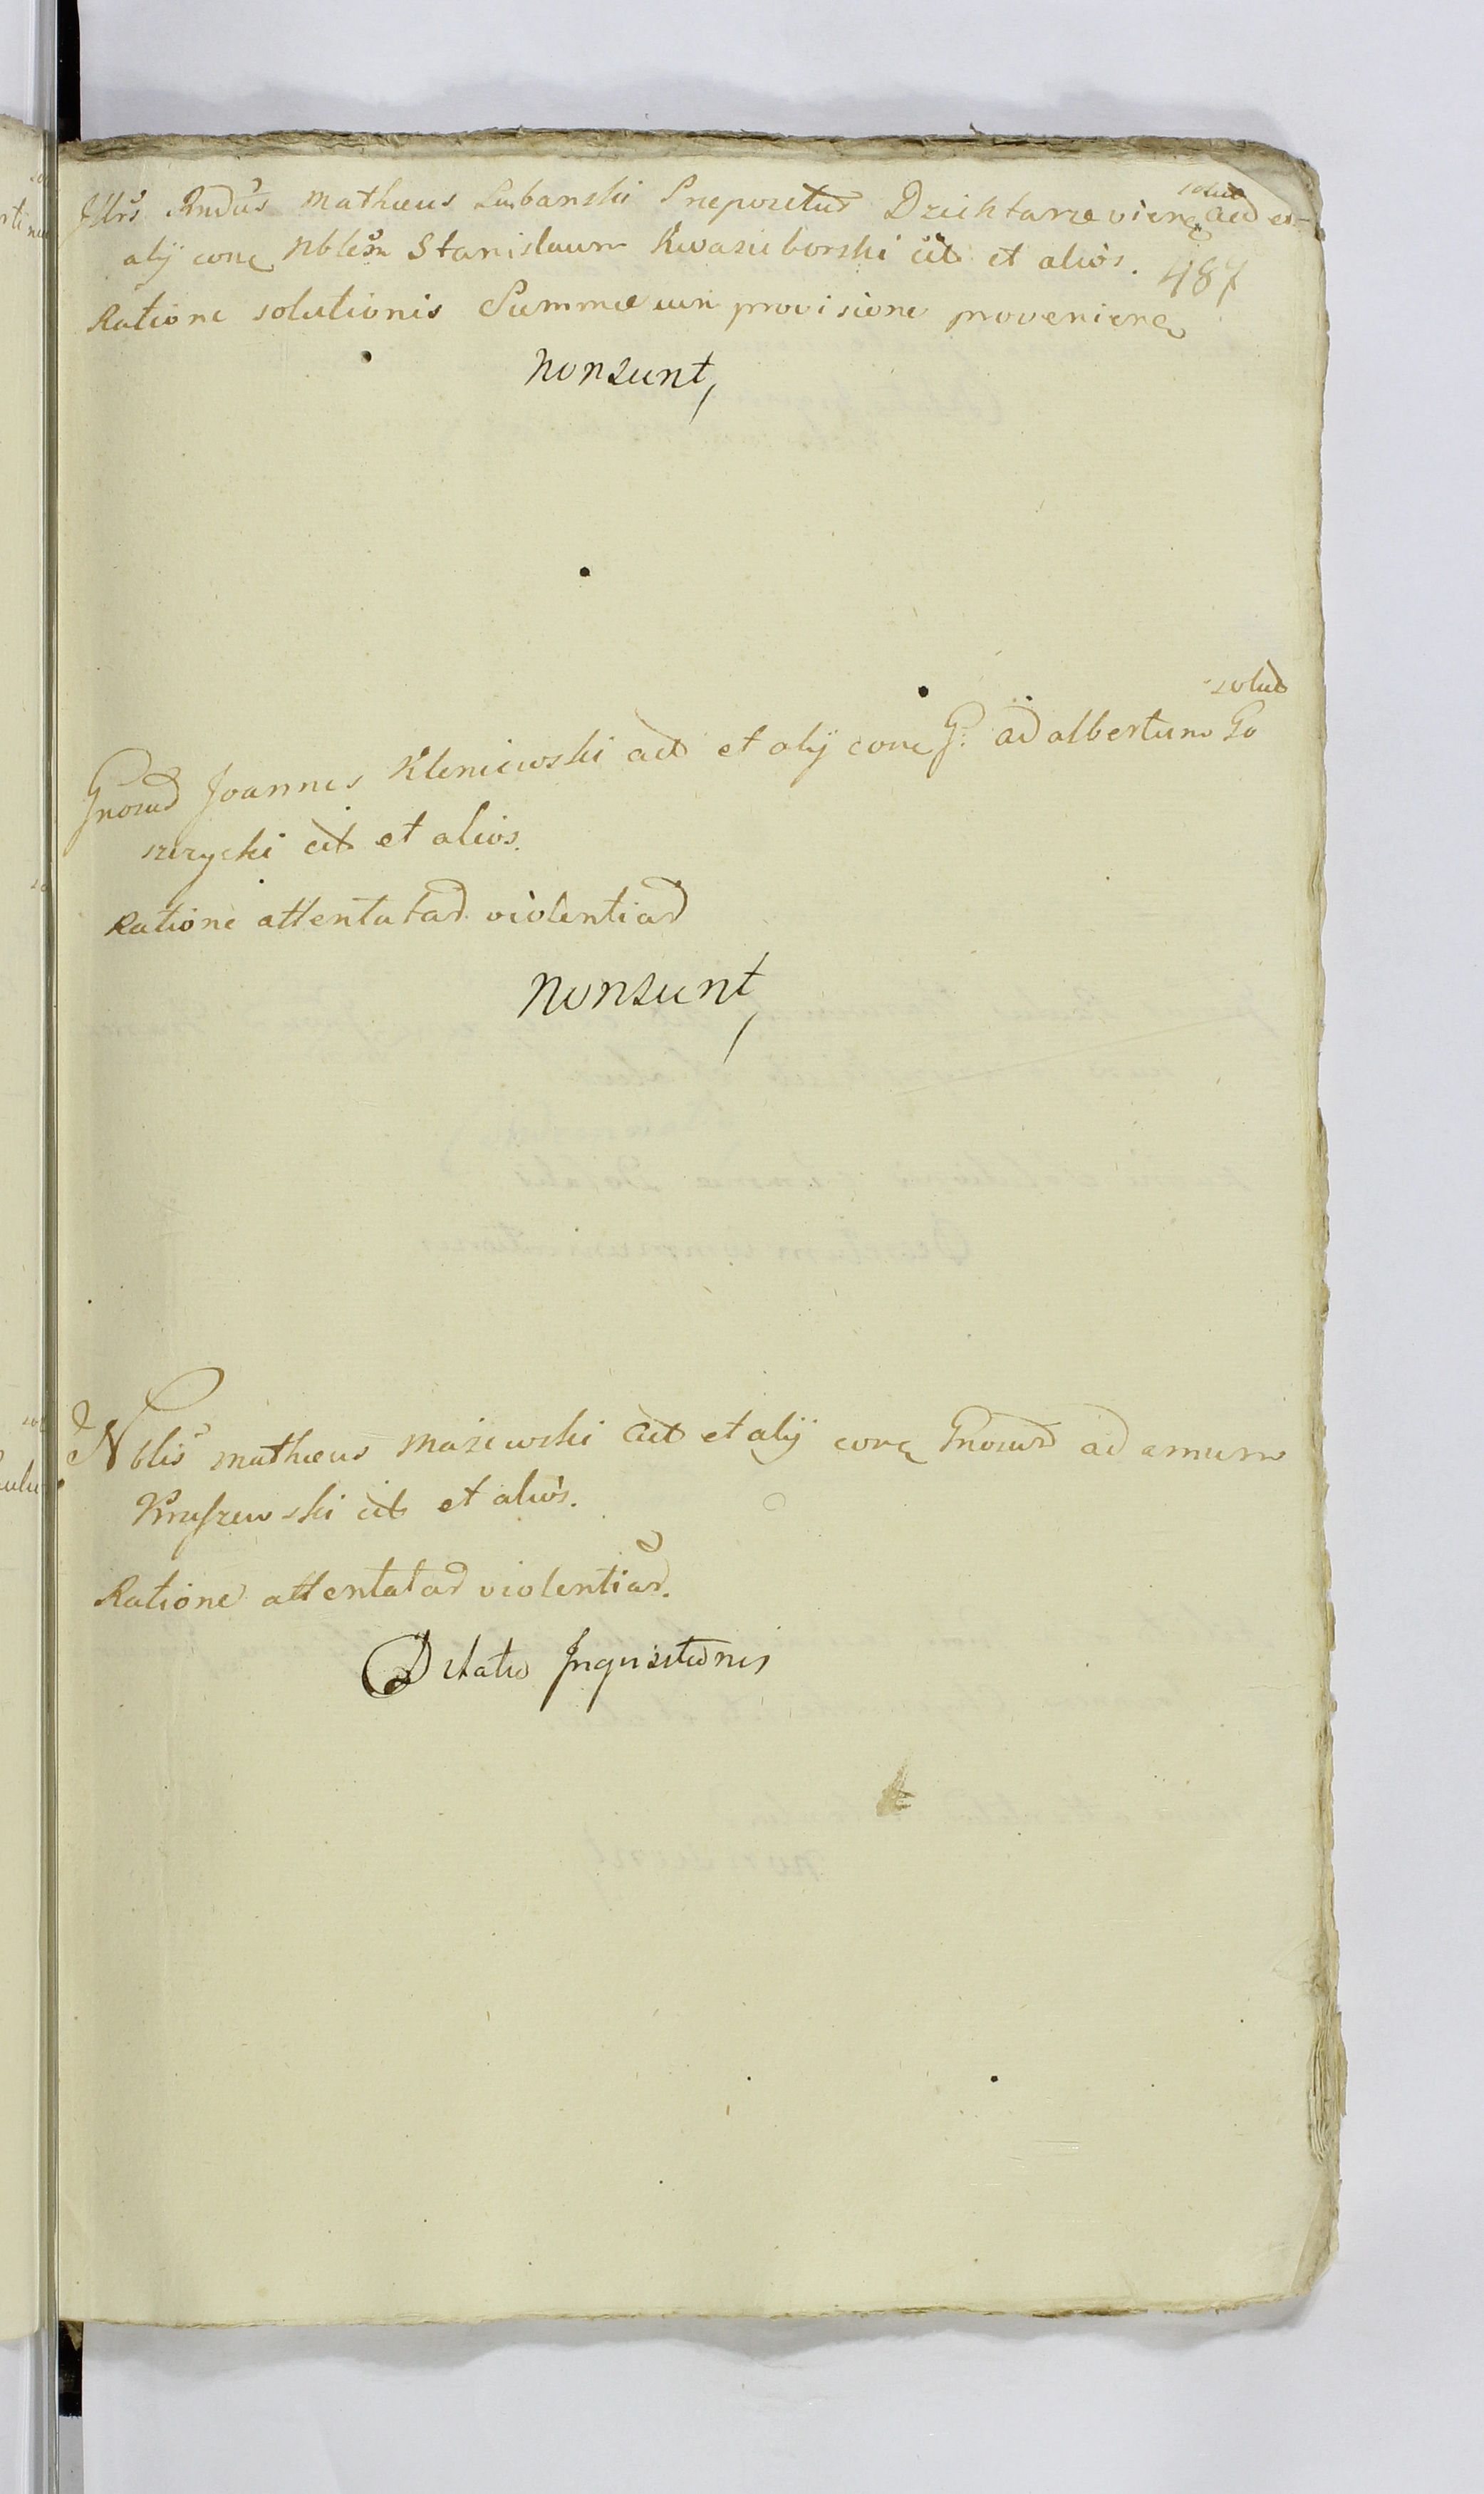 solut
Illrs Rndus Mathæus Lubanski Præpositus Dziektarzevienę act et
alÿ conę Nblem Stanislaum Kwasieborski cit et alios.
487
Ratione solutionis Summæ cum provisione provenienę
Nonsunt,
solut
Gnosus Joannes Kleniewski act et alÿ conę G. Adalbertum Go
szczycki cit et alios.
Ratione attentatas violentias
Nonsunt,
Nblis Mathæus Mazewski Act et alÿ conę Gnosus Adamum
Kruszewski cit et alios.
Ratione attentatas violentias.
Dilatio Inquisitionis